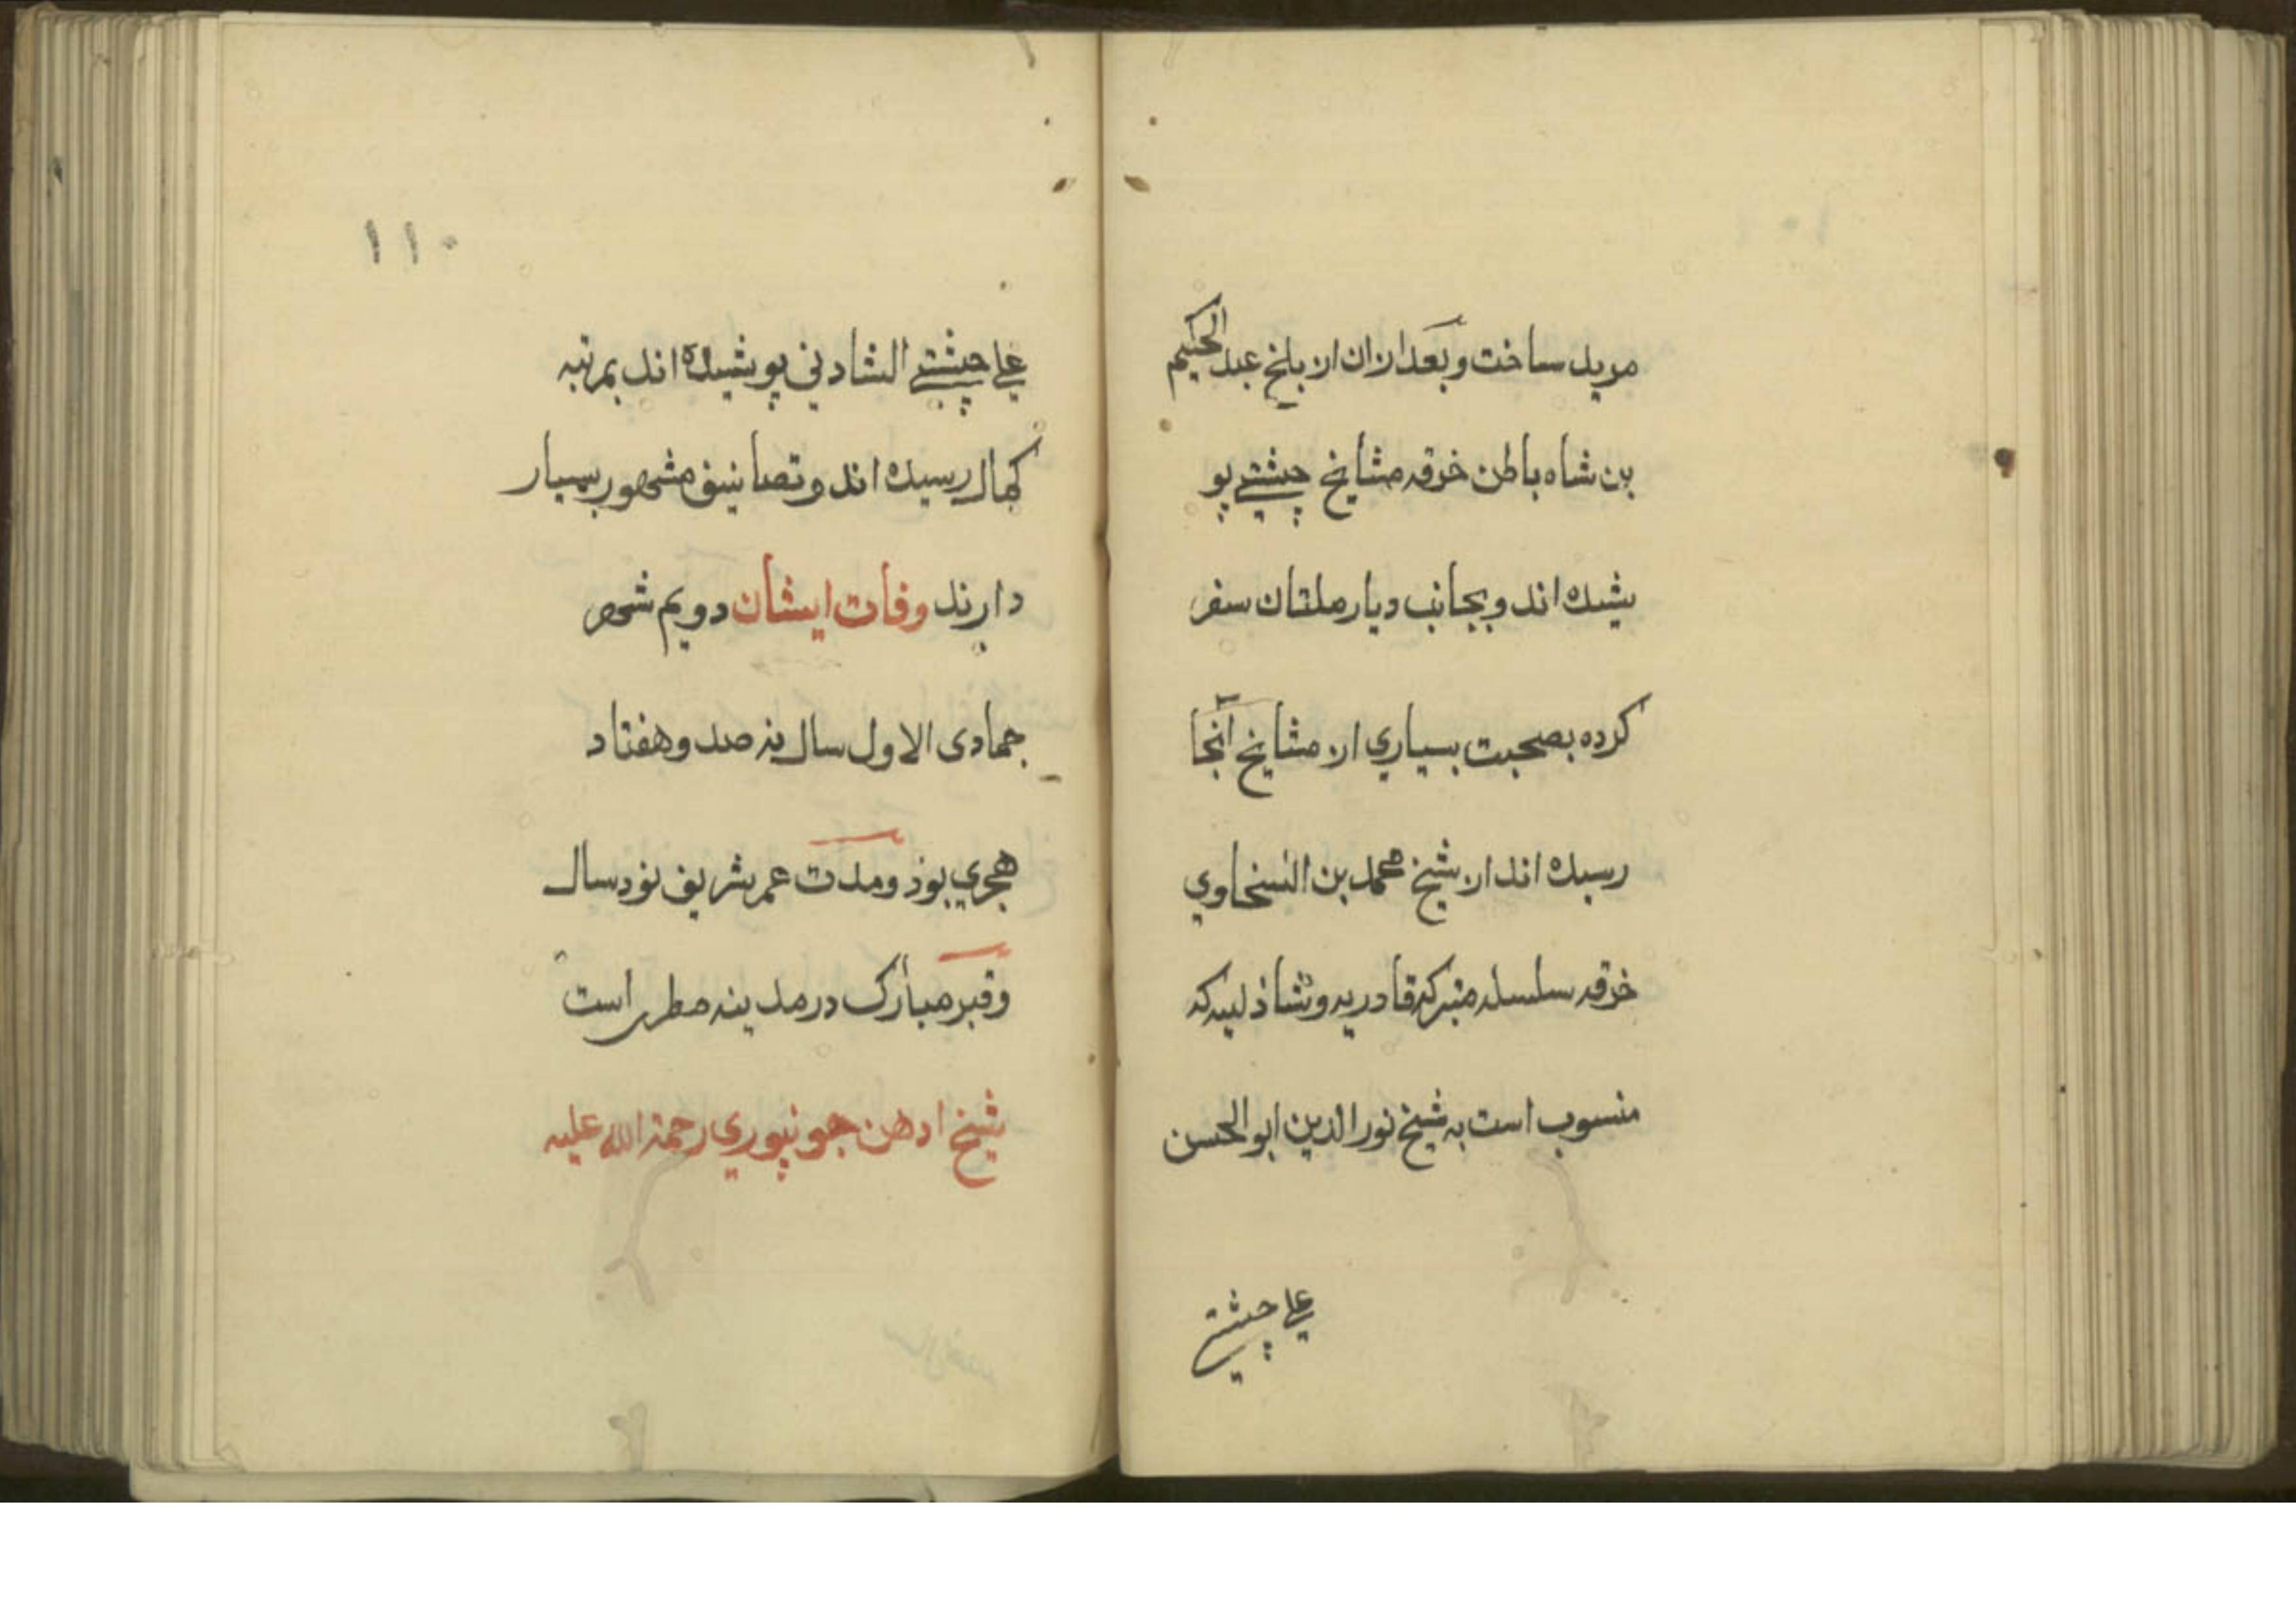 مرید ساخت و بعد ازان از بلخ عبد الحکیم
بن شاه باطن خرقه مشایخ چشتے پو
شیده اند و بجانب دیار ملتان سفر
کرده بصحبت بسیاري از مشایخ آنجا
رسیده اند از شیخ محمد بن السخاوي
خرقه سلسله متبرکه قادریه و شاذلیه که
منسوب است به شیخ نور الدین ابو الحسن
علے چشتے
۱۱۰
علے چشتے الشادني پوشیده اند بمرتبه
کمال رسیده اند و تصانیف مشهور بسیار
دارند وفات ایشان دویم شهر
جمادى الاول سال نه صد و هفتاد
هجري بوذ و مدت عمر شریف نود سال
و قبر مبارک در مدینه مطهر است
شیخ ادهن جونپوري رحمة الله علیه